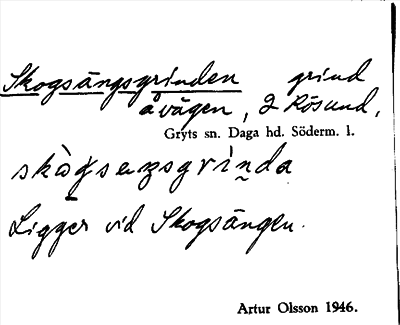 Skogsängsgrinden grind
åvägen, 2 Rösund,
Gryts sn. Daga hd. Söderm. l.
Ligger vid Skogsängen.
Artur Olsson 1946.